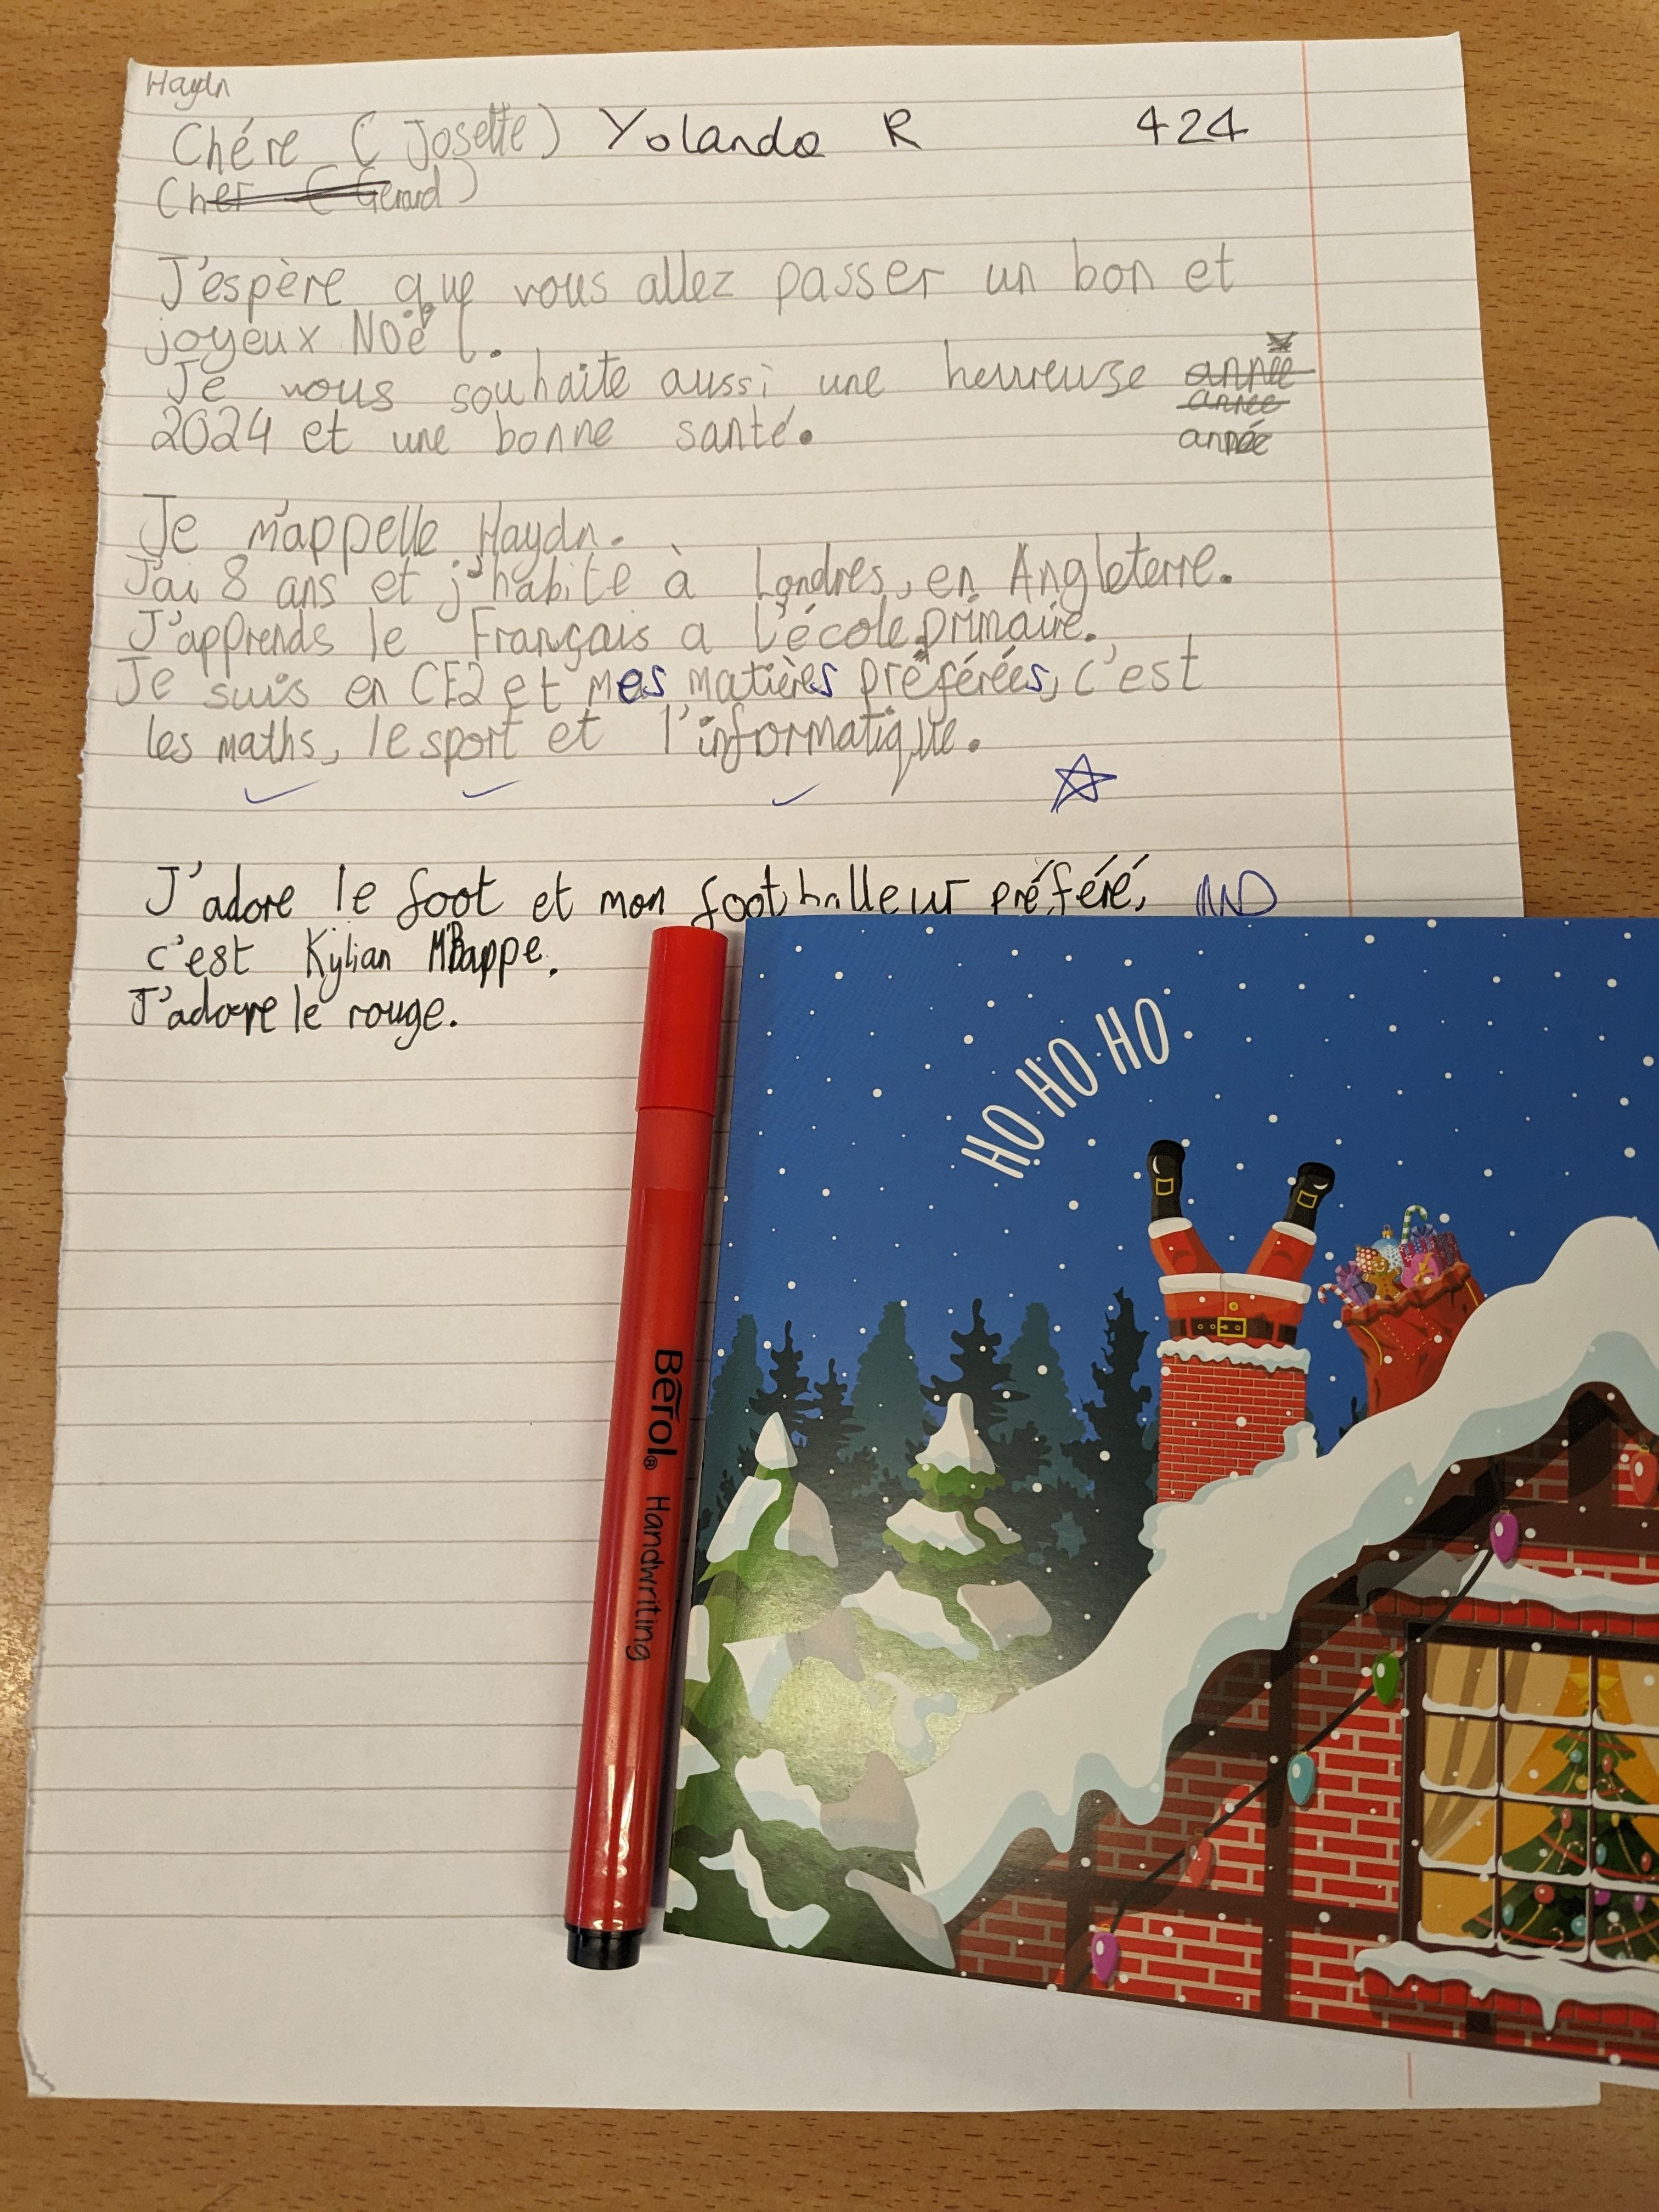 Haydn
Chére (Josette) Yolanda R 424
Cher (Gérard)
J'espère que vous allez passer un bon et
joyeux NOël.
Je vous souhaite aussi une heureuse année
année
2024 et une bonne santé. année
Je m'appelle Haydn.
J'ai 8 ans et j'habite à Londres, en Angleterre.
J'apprends le Français a l'école primaire.
Je suis en CE2 et mes matières préférées, c'est
les maths, le sport et l'informatique.
J'adore le foot et mon footballeur préféré,
c'est Kylian MBappe.
J'adore le rouge.
HO HO HO
Berol® Handwriting